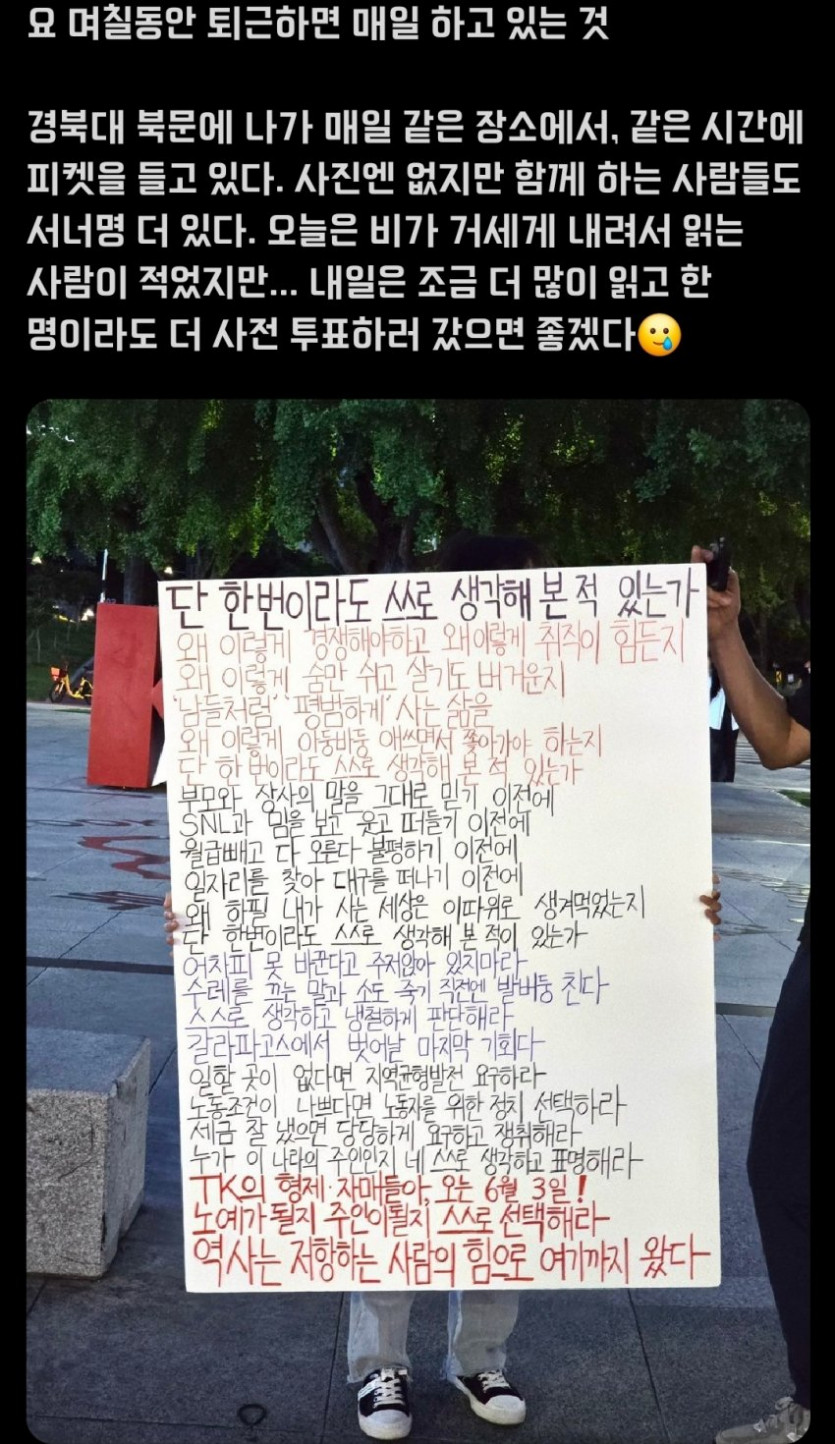 요 며칠동안 퇴근하면 매일 하고 있는 것
경북대 북문에 나가 매일 같은 장소에서, 같은 시간에
피켓을 들고 있다. 사진엔 없지만 함께 하는 사람들도
서너명 더 있다. 오늘은 비가 거세게 내려서 읽는
사람이 적었지만... 내일은 조금 더 많이 읽고 한
명이라도 더 사전 투표하러 갔으면 좋겠다🥲
단 한번이라도 스스로 생각해 본 적 있는가
왜 이렇게 경쟁해야하고 왜 이렇게 취직이 힘든지
왜 이렇게 숨만 쉬고 살기도 버거운지
'남들처럼' '평범하게' 사는 삶을
왜 이렇게 아등바등 애쓰면서 쫓아가야 하는지
단 한번이라도 스스로 생각해 본 적 있는가
부모와 상사의 말을 그대로 믿기 이전에
SNL과 밈을 보고 웃고 떠들기 이전에
월급빼고 다 오른다 불평하기 이전에
일자리를 찾아 대구를 떠나기 이전에
왜 하필 내가 사는 세상은 이따위로 생겨먹었는지
단 한번이라도 스스로 생각해 본 적이 있는가
어차피 못 바꾼다고 주저앉아 있지마라
수레를 끄는 말과 소도 죽기 직전엔 발버둥 친다
스스로 생각하고 냉철하게 판단해라
갈라파고스에서 벗어날 마지막 기회다
일할 곳이 없다면 지역균형발전 요구하라
노동조건이 나쁘다면 노동자를 위한 정치 선택하라
세금 잘 냈으면 당당하게 요구하고 쟁취해라
누가 이 나라의 주인인지 네 스스로 생각하고 표명해라
TK의 형제·자매들아, 오는 6월 3일!
노예가 될지 주인이 될지 스스로 선택해라
역사는 저항하는 사람의 힘으로 여기까지 왔다